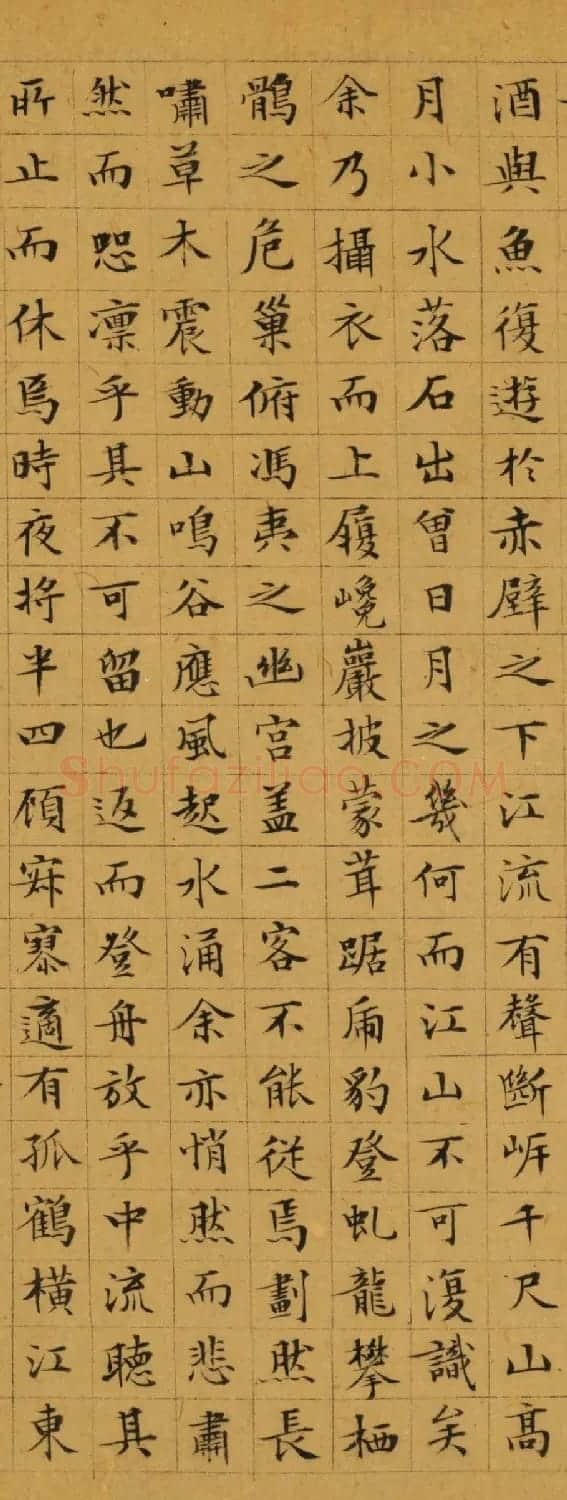 酒與魚復遊於赤壁之下江流有聲斷岸千尺山高
月小水落石出曾日月之幾何而江山不可復識矣
余乃攝衣而上履巉巖披蒙茸踞虎豹登虬龍攀栖
鶻之危巢俯馮夷之幽宮盖二客不能從焉劃然長
嘯草木震動山鳴谷應風起水涌余亦悄然而悲肅
然而恐凛乎其不可留也返而登舟放乎中流聽其
所止而休焉時夜將半四顧寂寥適有孤鶴橫江東
Shufaziliao.COM